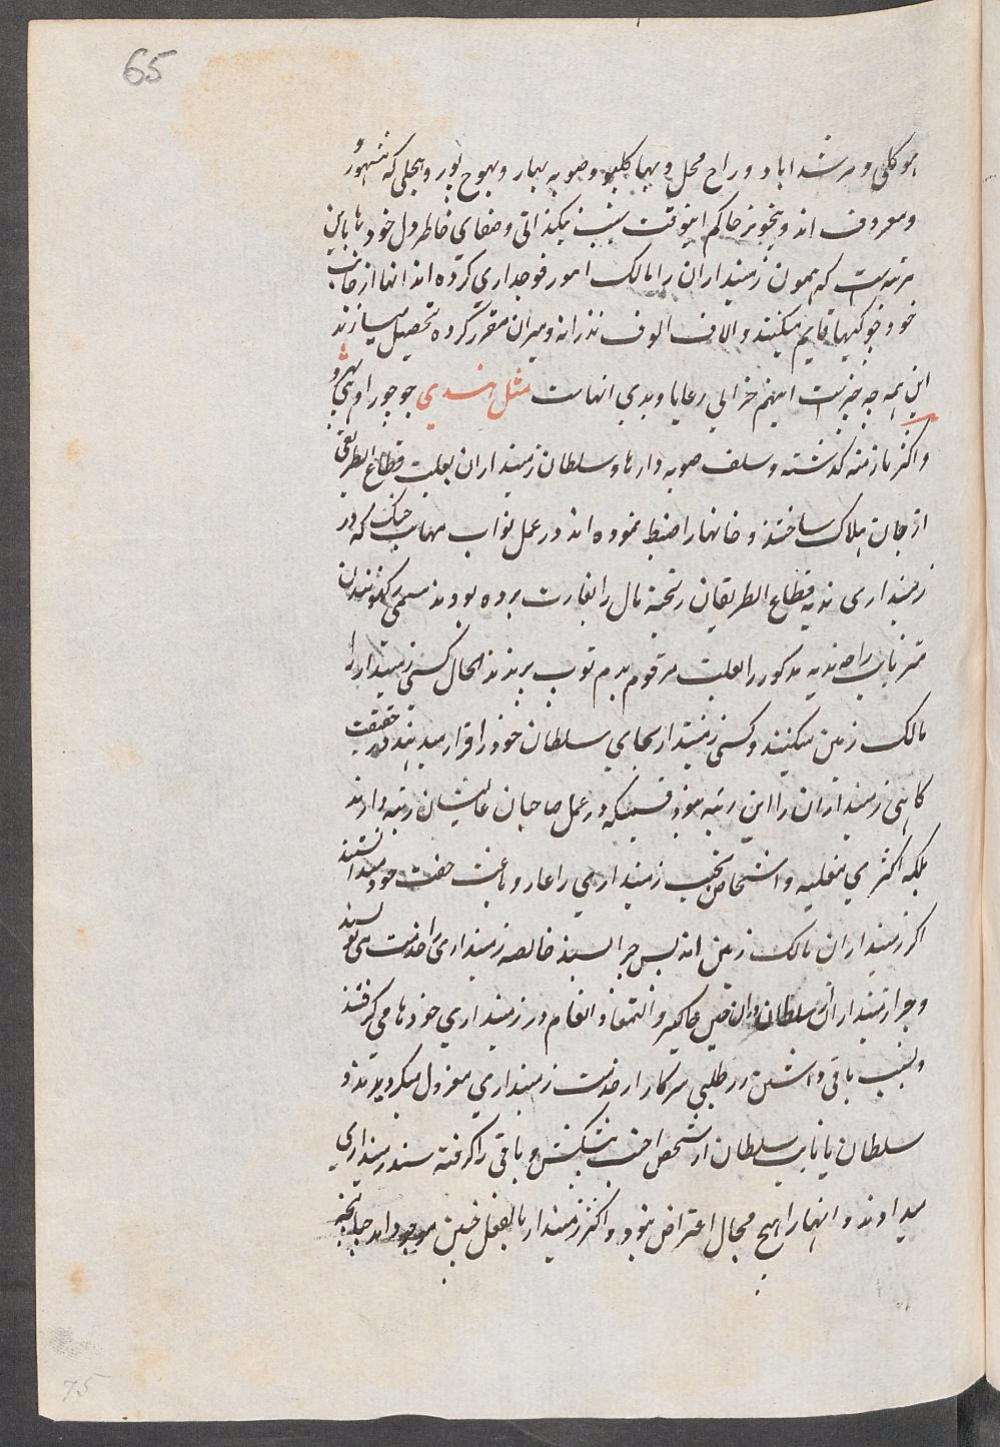 65
هوکلی و مرشداباد و راج محل و بهاکلپور و صوبه بهار و بهوج پور و بجلی که مشهور
و معروف اند و بتجویز حاکم اینوقت بسبب نیکذاتی و صفای خاطر و دل خودها باین
مرتبه است که همون زمینداران را مالک امور فوجداری کرده اند انها از جانب
خود چوکیها قایم میکنند و الاف الوف نذرانه و میران مقرر کرده تحصیل میسازند
این همه چه چیزیست اینهم خرابی رعایا و بدی انهاست مثل هندی جو جور اوهی
و اکثر بازمنه کذشته و سلف صوبه دارها و سلطان زمینداران بعلت قطاع الطریقی
از جان هلاک ساختند و خانهما را ضبط نموده اند در عمل نواب مهابت جنک که در
زمینداری ندیه قطاع الطریقان ریخته مال را بغارت برده بودند مسمی
راجه ندیه مذکور را بعلت مرقوم بدم توپ پریدند الحال کسی زمیندار را
مالک زمین میکنند و کسی زمیندار بجای سلطان خود را قرار میدهند حقیقت
کاهی زمینداران را این رتبه نبود قسمیکه در عمل صاحبان عالیشان رتبه دارند
بلکه اکثری مغلیه و اشخاص نجیب زمینداری را عار و باعث خفت خود میدانستند
اکر زمینداران مالک زمین اند پس چرا سند خالصه زمینداری و خدمت می نویسند
و چرا زمینداران سلطان جاکیر و التمغا و انعام در زمینداری خودها می کرفتند
و بسبب باقی داشتن زر طلبی سرکار از خدمت زمینداری معزول میکردیدند و
سلطان یا نایب سلطان از شخص اجنب پیشکش و باقی را کرفته سند زمینداری
میدادند و انها را هیچ مجال اعتراض نبود و اکثر زمیندار بالفعل چنین موجود اند چنانچه
75